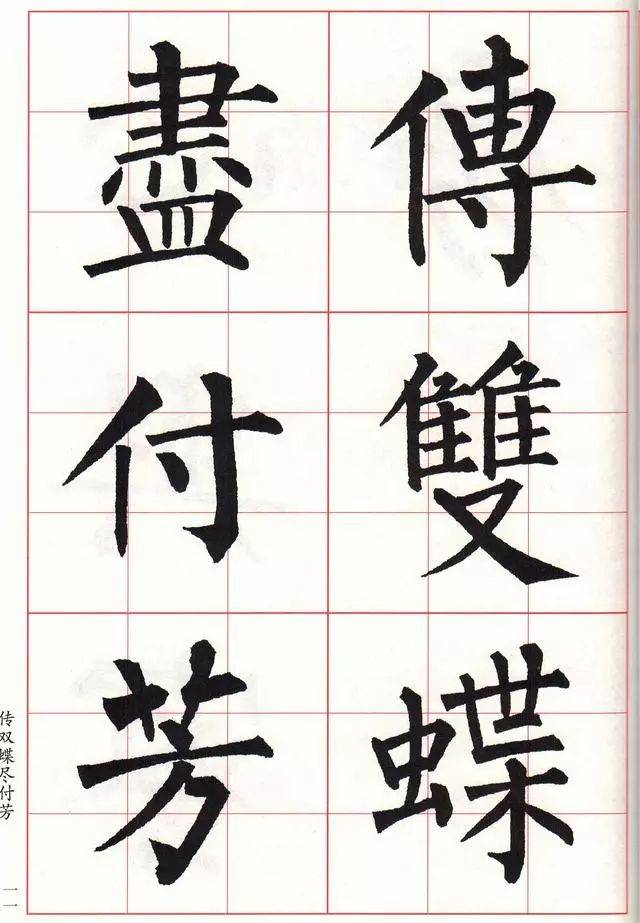 傳雙蝶
盡付芳
传双蝶尽付芳
一一